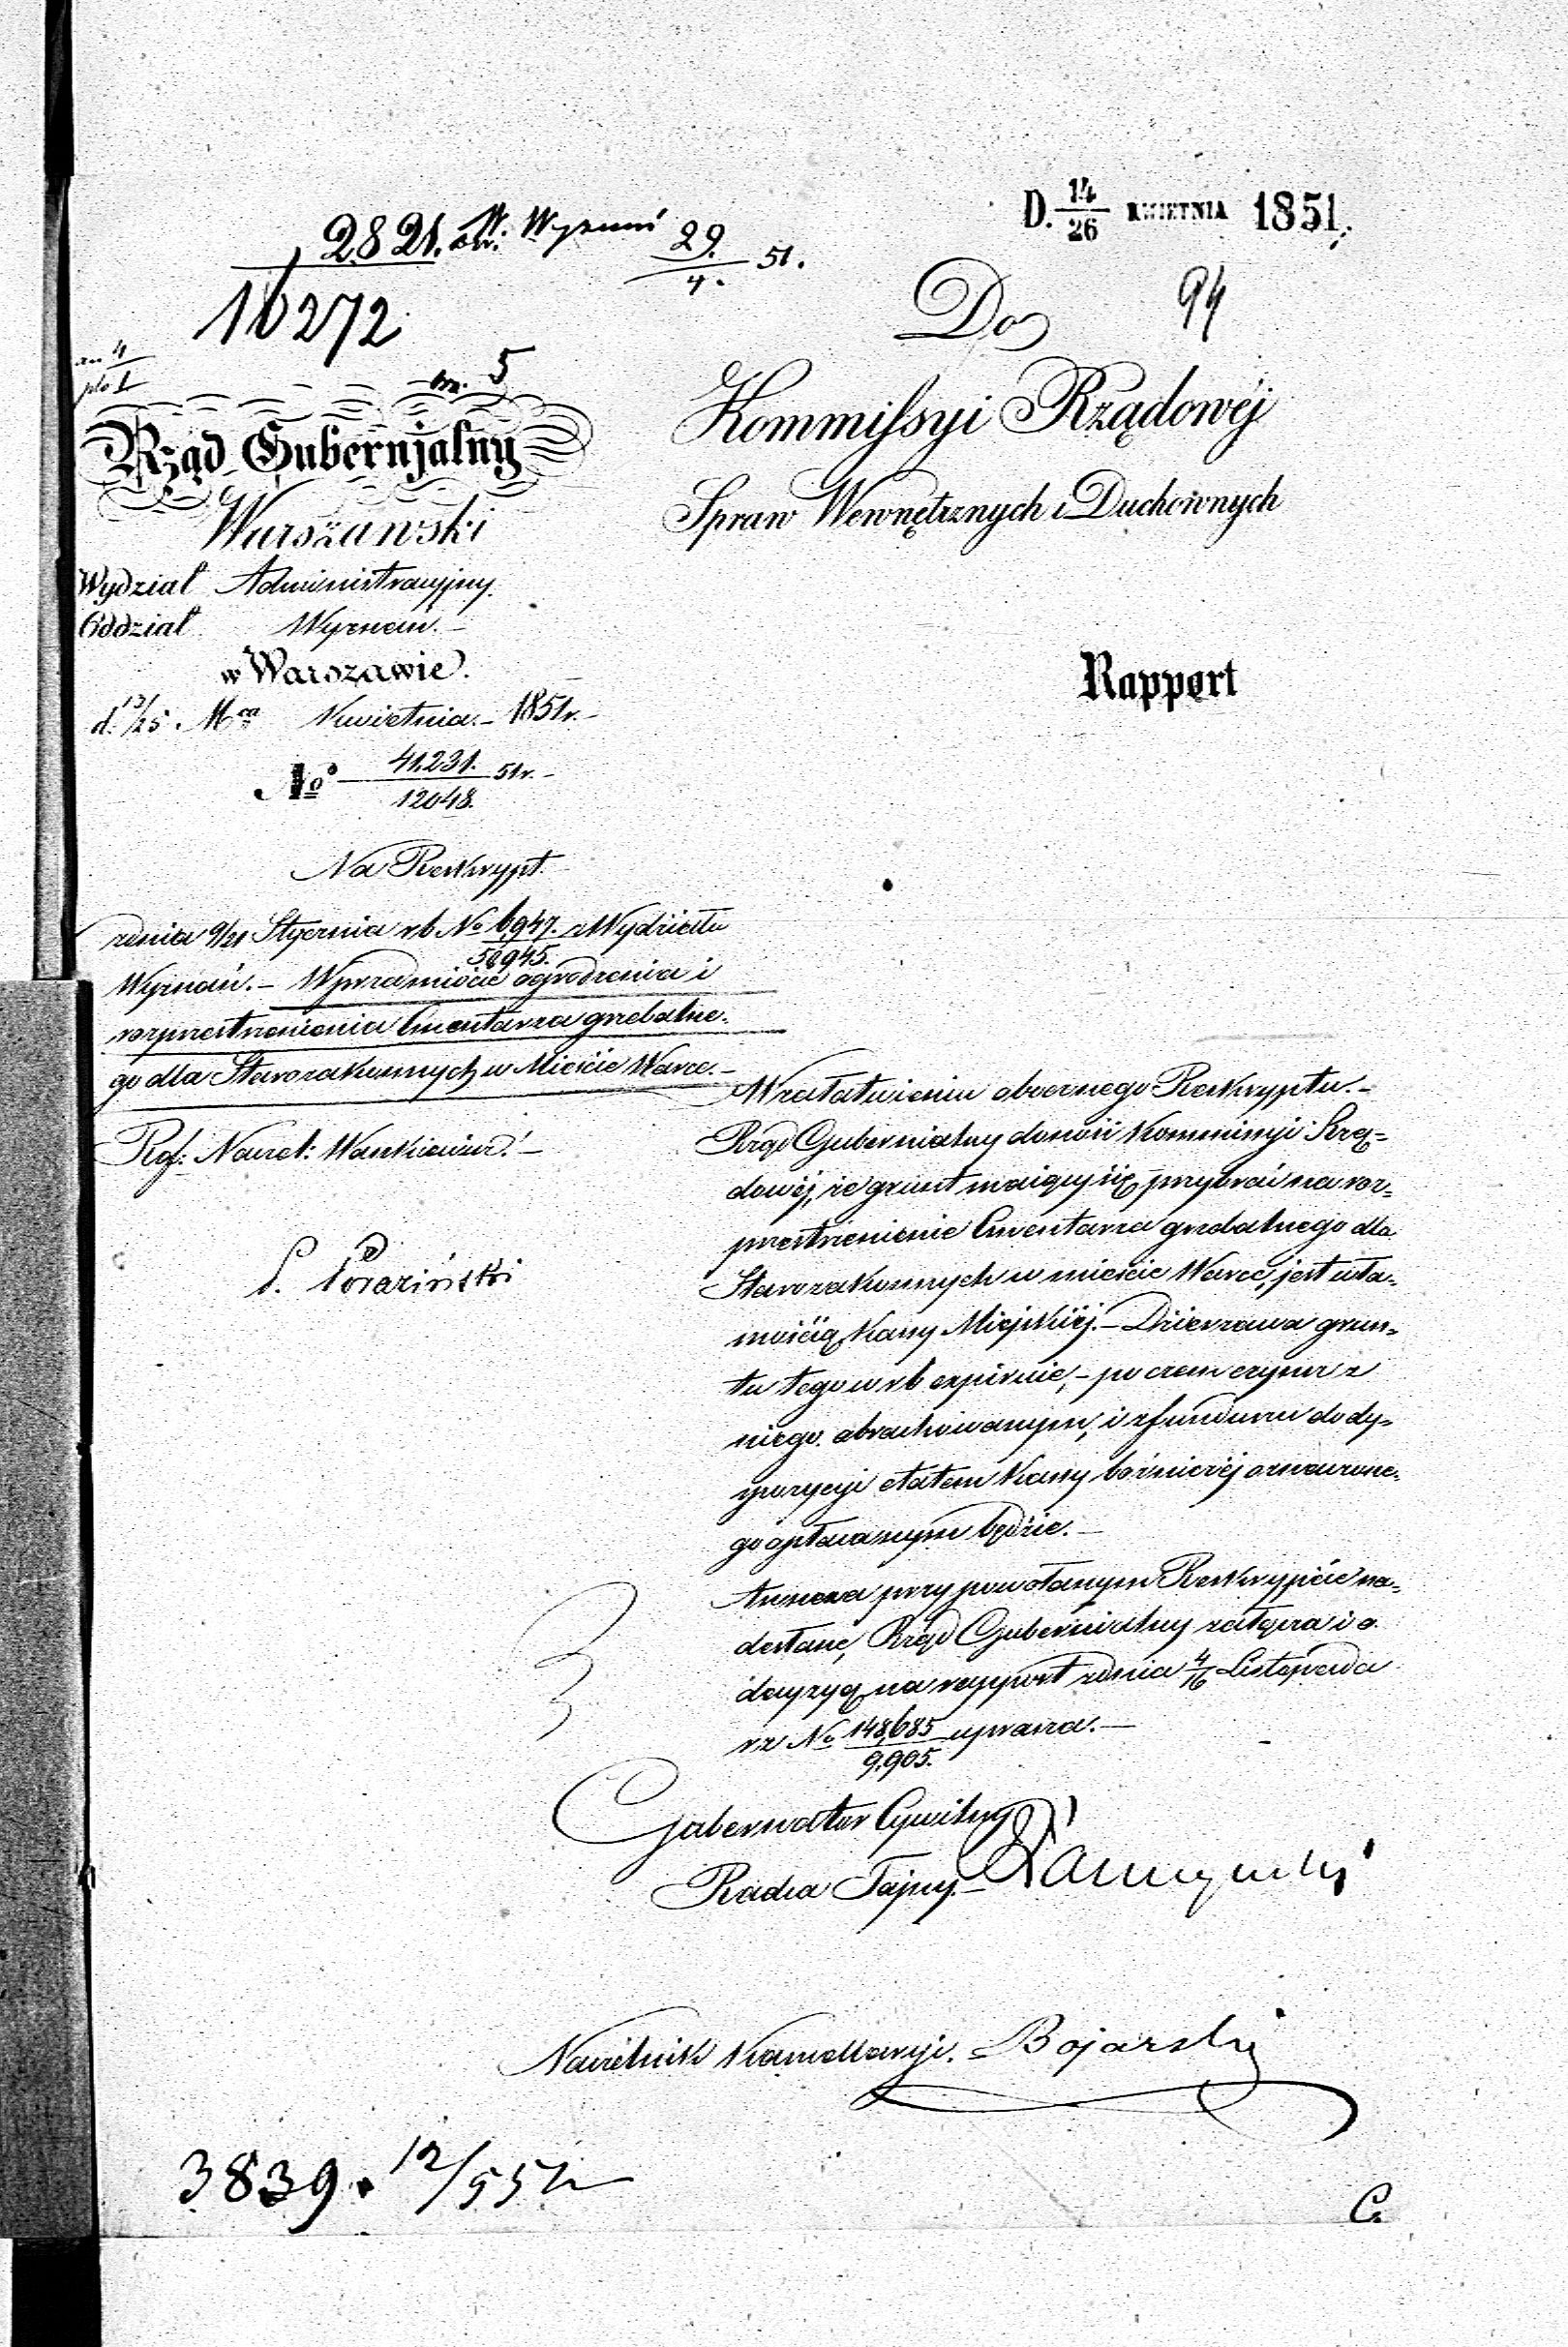 D. 14/26 KWIETNIA 1851.
2821. W. Wyznań 29./4. 51.
16272
94
5
Do
Kommissyi Rządowéj
Spraw Wewnętrznych i Duchownych
Rząd Gubernjalny
Warszawski
Wydział Administracyjny.
Oddział Wyznań.–
w Warszawie.
d. 13/25 Mca Kwietnia.– 1851r.–
No 41,231./12048. 51r.–
Rapport
Na Reskrypt.
z dnia 9/21 Stycznia rb No 6,947./56945. z Wydziału
Wyznań.– W przedmiocie ogrodzenia i
rozprzestrzenienia Cmentarza grzebalne-
go dla Starozakonnych w Mieście Warce.–
Ref: Naczel: Wankiewicz.–
W załatwieniu obocznego Reskryptu.–
Rząd Gubernialny donosi Kommissyi Rzą-
dowéj, że grunt maiący się przybrać na roz-
przestrzenienie Cmentarza grzebalnego dla
Starozakonnych w mieście Warce, jest wła-
snością Kassy Miejskiéj.– Dzierzawa grun-
tu tego w rb expiruie,– po czem czynsz z
niego obrachowanym, i z funduszu do dy-
spozycyi etatem Kassy bożniczéj oznaczone-
go opłacanym będzie.–
Annexa przy powołanym Reskrypcie na-
desłane, Rząd Gubernialny załącza i o
decyzyą na rapport z dnia 4/16 Listopada
rz No 148,685/9,905. uprasza.–
Gubernator Cywilny
Radca Tajny.–
Naczelnik Kancellaryi. Bojarski
3839. 12/5 51
C.